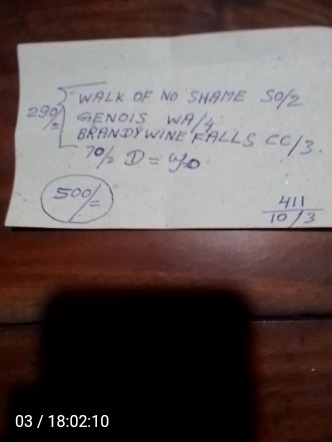 WALK OF NO SHAME SO/2
290/=
GENOIS WA/4
BRANDYWINE FALLS CC/3.
70/= D =
500/=
411
10/3
03 / 18:02:10